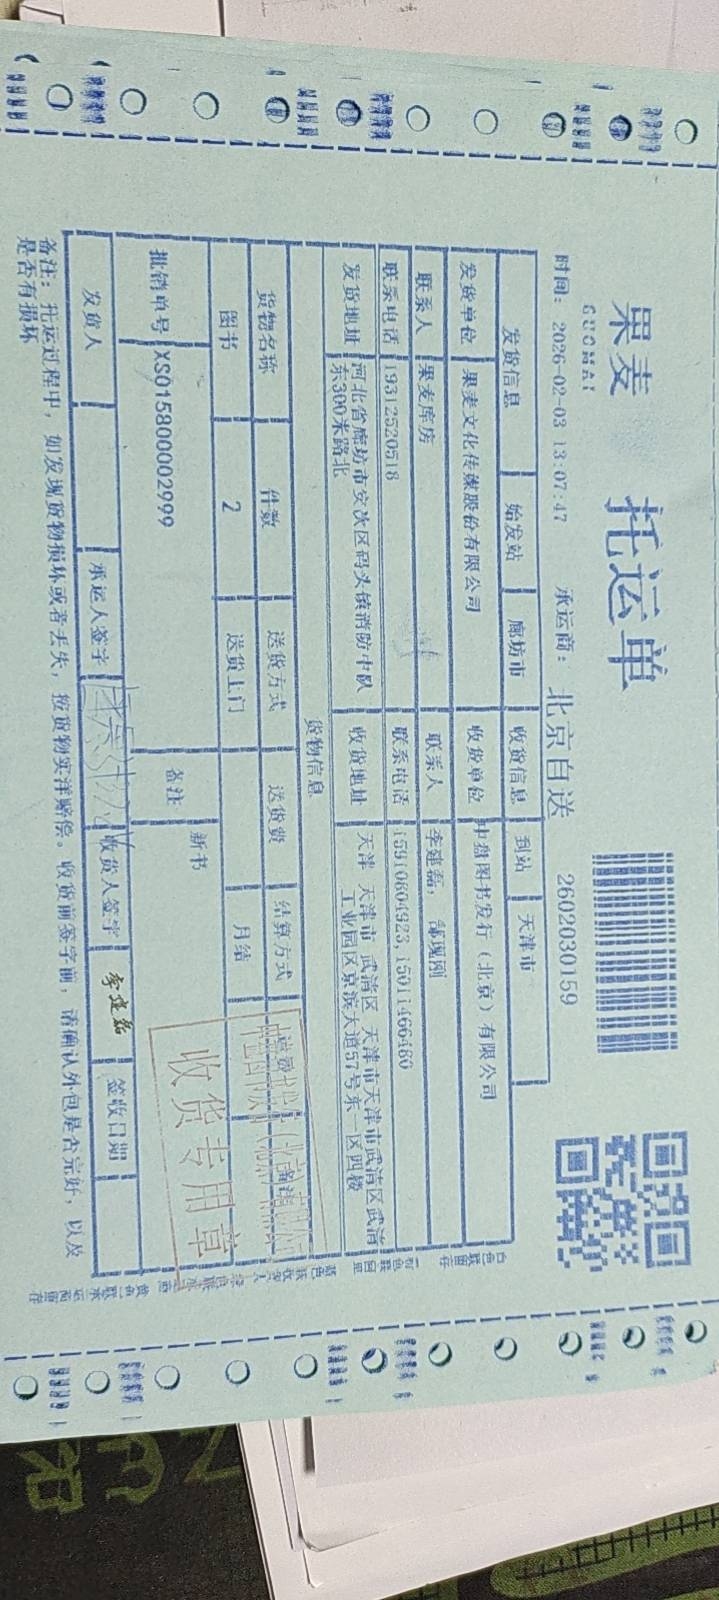 果麦
GUOMAI
托运单
2602030159
时间: 2026-02-03 13:07:47 承运商: 北京自送
发货信息 始发站 廊坊市 收货信息 到站 天津市
发货单位 果麦文化传媒股份有限公司 收货单位 中盘图书发行(北京)有限公司
联系人 果麦库房 联系人 李建磊,
联系电话 19312520518 联系电话 15910604923,15011466480
发货地址 河北省廊坊市安次区码头镇消防中队
东300米路北
收货地址 天津 天津市 武清区 天津市天津市武清区武清
工业园区京滨大道57号东一区四楼
货物信息
货物名称 件数 送货方式 送货费 结算方式
图书 2 送货上门 月结
批销单号 XS015800002999 备注 新书
发货人 承运人签字 收货人签字 李建磊 签收日期
收货专用章
备注: 托运过程中, 如发现货物损坏或者丢失, 按货物实洋赔偿。收货前签字前, 请确认外包是否完好, 以及
是否有损坏